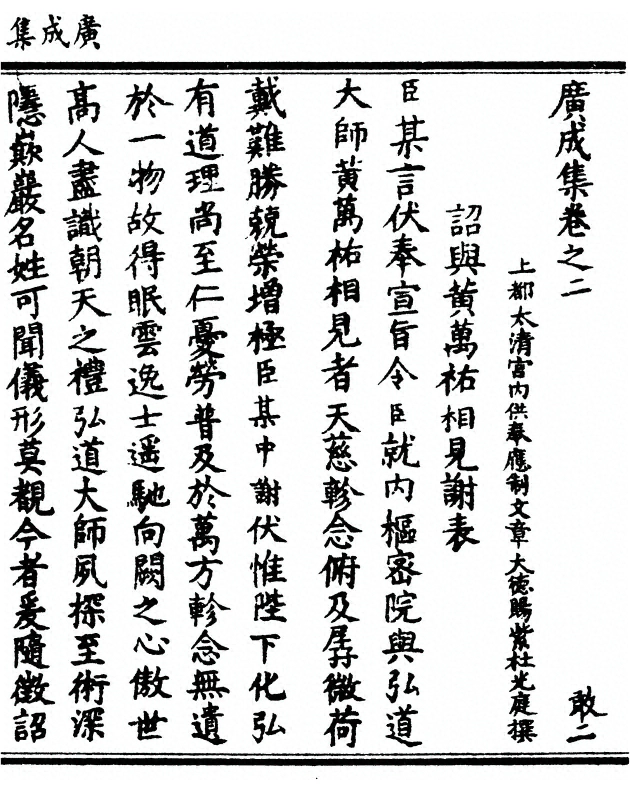 廣成集
廣成集卷之二
敢二
上都太清宮內供奉應制文章大德賜紫杜光庭撰
詔與黃萬祐相見謝表
臣某言伏奉宣旨令臣就內樞密院與弘道
大師黃萬祐相見者天慈軫念俯及孱微荷
戴難勝兢榮增極臣某中謝伏惟陛下化弘
有道理尚至仁憂勞普及於萬方軫念無遺
於一物故得眠雲逸士遥馳向闕之心傲世
高人盡識朝天之禮弘道大師夙探至術深
隱嵌巖名姓可聞儀形莫覩今者爰隨徵詔